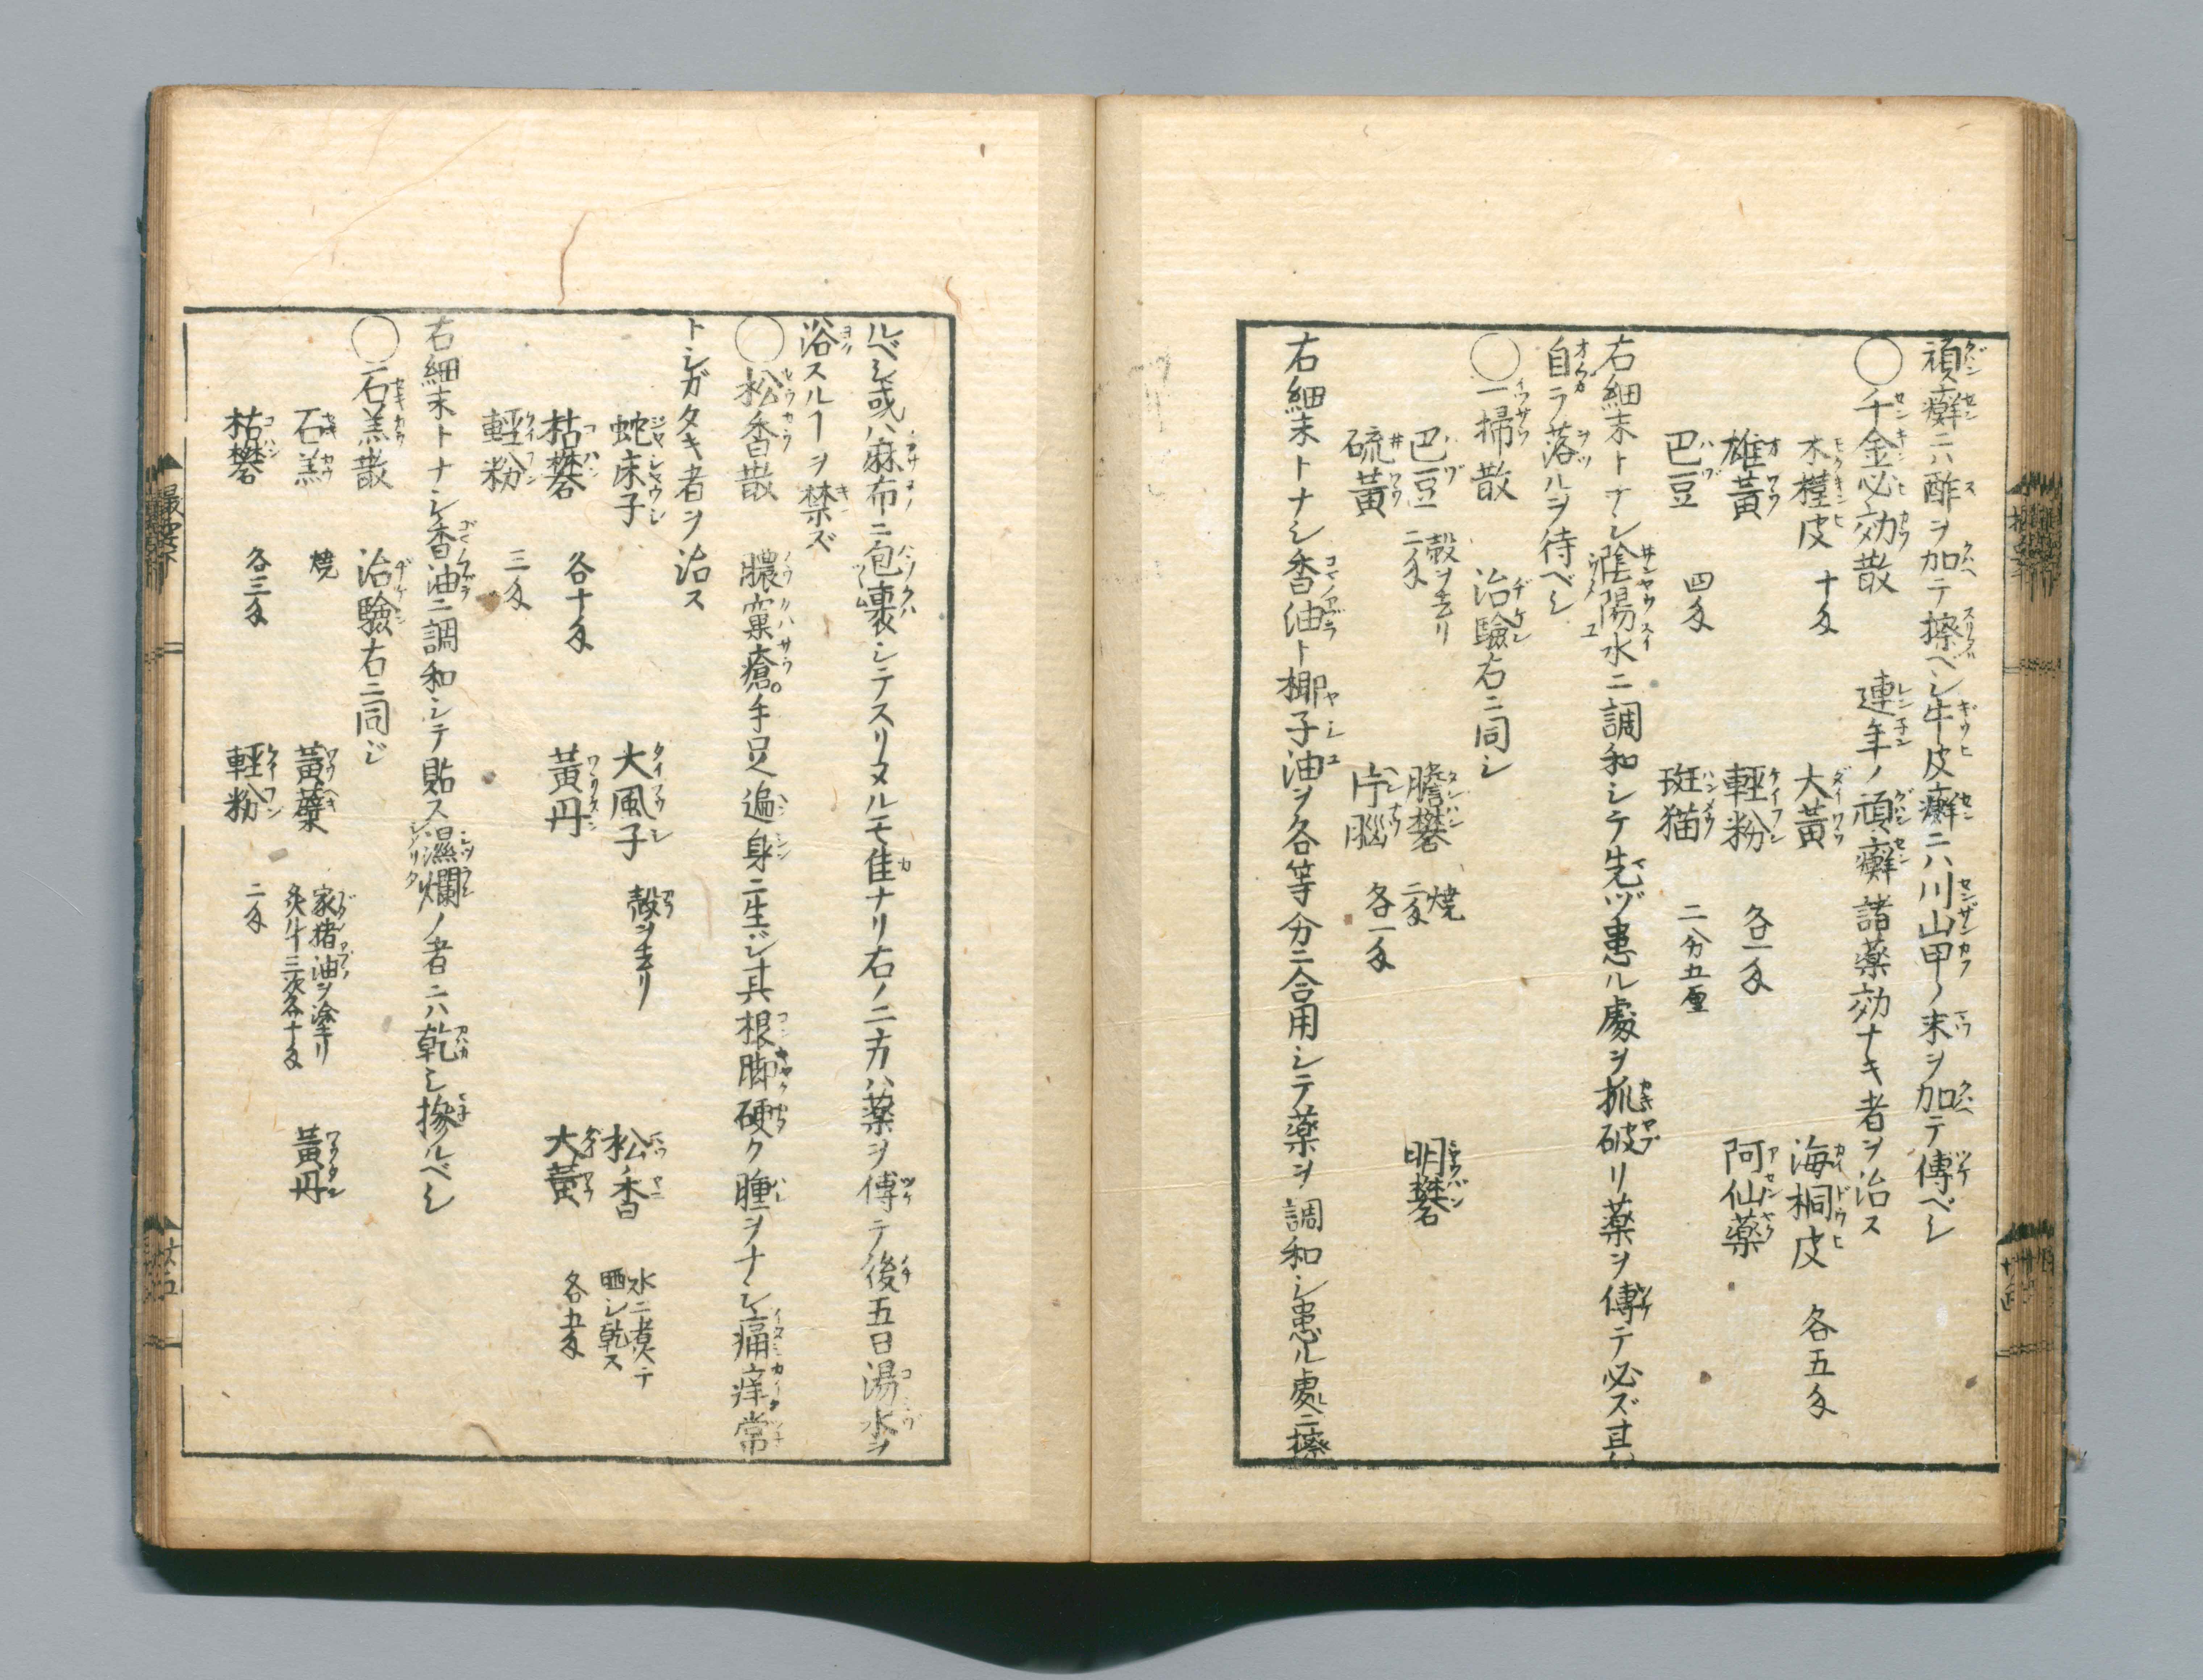 頑癬ニハ酢ヲ加テ擦ベシ牛皮癬ニハ川山甲ノ末ヲ加テ傅ベシ
〇千金必効散 連年ノ頑癬諸薬効ナキ者ヲ治ス
木槿皮 十匁 大黄 海桐皮 各五匁
雄黄 輕粉 各一匁 阿仙薬
巴豆 四匁 斑猫 二分五厘
右細末トナシ陰陽水ニ調和シテ先ヅ患ル處ヲ抓破リ薬ヲ傅テ必ズ其
自ラ落ルヲ待ベシ
〇一掃散 治驗右ニ同シ
巴豆 殻ヲ去リ二匁 膽礬 焼二匁 明礬
硫黄 片腦 各一匁
右細末トナシ香油ト椰子油ヲ各等分ニ合用シテ薬ヲ調和シ患ル處ニ擦
ルベシ或ハ麻布ニ包裹シテスリヌルモ佳ナリ右ノ二方ハ薬ヲ傅テ後五日湯水ヲ
浴スルヿヲ禁ズ
〇松香散 膿窠瘡。手足遍身ニ生ジ其根脚硬ク腫ヲナシ痛痒常
トシガタキ者ヲ治ス
蛇床子 大風子 殻ヲ去リ 松香 水ニ煮テ晒シ乾ス
枯礬 各十匁 黄丹 大黄 各五匁
輕粉 三匁
右細末トナシ香油ニ調和シテ貼ス濕爛ノ者ニハ乾シ摻ルベシ
〇石羔散 治驗右ニ同ジ
石羔 焼 黄蘗 家猪油ヲ塗リ炙ルヿ三次各十匁 黄丹
枯礬 各三匁 輕粉 二匁